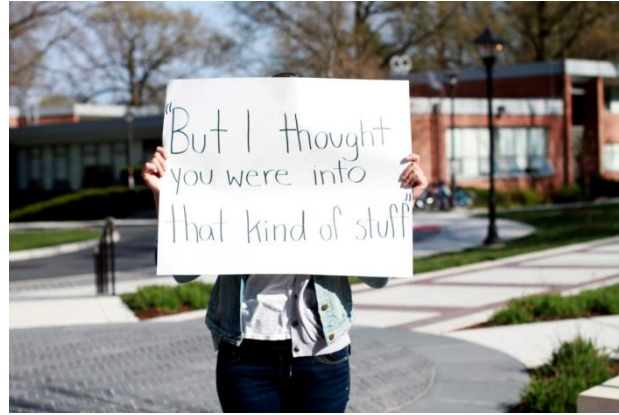 "But I thought
you were into
that kind of stuff"